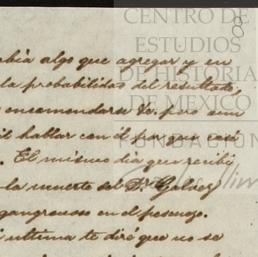 CENTRO DE
ESTUDIOS
DE HISTORIA
DE MEXICO
FUNDACIÓN
había algo que agregar y en
la probabilidad del resultado,
encomendarse &. pero sin
hablar con él por que casi
. El mismo dia que recibi
la muerte del Dr Galvez
gangrenoso en el pescuezo.
ultima te diré que no se